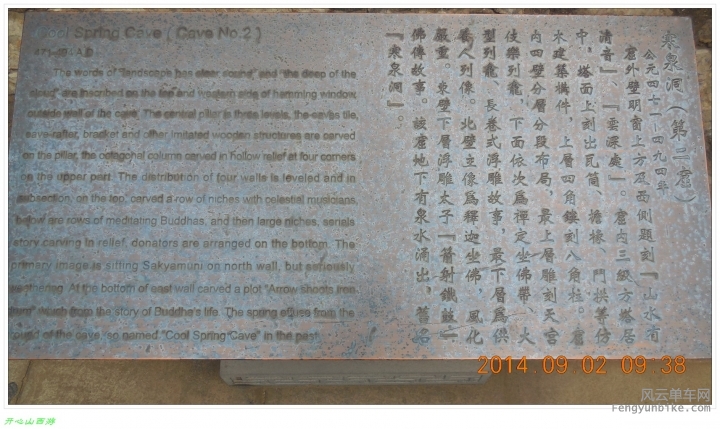 Cool Spring Cave ( Cave No.2 )
471-494 A.D
The words of "landscape has clear sound," and "the deep of the
cloud" are inscribed on the top and western side of hamming window
outside wall of the cave. The central pillar is three levels, the eaves tile,
eave-rafter, bracket and other imitated wooden structures are carved
on the pillar, the octagonal column carved in hollow relief at four corners
on the upper part. The distribution of four walls is leveled and in
subsection, on the top, carved a row of niches with celestial musicians,
below are rows of meditating Buddhas, and then large niches, serials
story carving in relief, donators are arranged on the bottom. The
primary image is sitting Sakyamuni on north wall, but seriously
weathering. At the bottom of east wall carved a plot "Arrow shoots iron
which from the story of Buddha's life. The spring effuse from the
of the cave, so named "Cool Spring Cave" in the past.
寒泉洞（第二窟）
公元四七一—四九四年
窟外壁明窗上方及西側題刻『山水有
清音』、『雲深處』。窟內三級方塔居
中，塔面上刻出瓦筒、檐椽、鬥拱等仿
木建築構件，上層四角鏤刻八角柱。窟
內四壁分層分段布局，最上層雕刻天宮
伎樂列龕，下面依次爲禪定坐佛帶、大
型列龕、長卷式浮雕故事，最下層爲供
養人列像。北壁主像爲釋迦坐佛，風化
嚴重。東壁下層浮雕太子『箭射鐵鼓』
佛傳故事。該窟地下有泉水滴出，舊名
『寒泉洞』。
2014.09.02 09:38
风云单车网
Fengyunbike.com
开心山西游